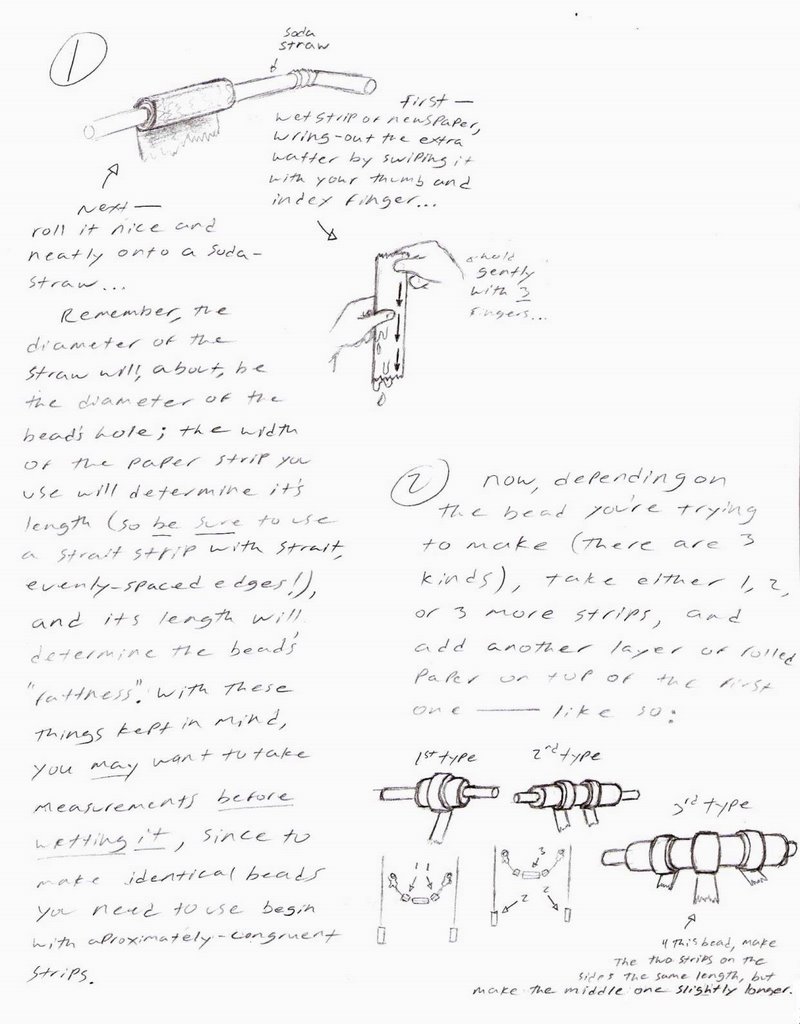 1
soda
straw
First —
wet strip of newspaper,
wring-out the extra
watter by swiping it
with your thumb and
index finger...
Next —
roll it nice and
neatly onto a soda-
straw...
hold
gently
with 3
fingers...
Remember, the
diameter of the
straw will, about, be
the diameter of the
bead's hole; the width
of the paper strip you
use will determine it's
length (so be sure to use
a strait strip with strait,
evenly-spaced edges!),
and its length will
determine the bead's
"fattness". With these
things kept in mind,
you may want to take
measurements before
wetting it, since to
make identical beads
you need to use begin
with aproximately-congruent
strips.
2 now, depending on
the bead you're trying
to make (there are 3
kinds), take either 1, 2,
or 3 more strips, and
add another layer of rolled
paper on top of the first
one — like so:
1st type
2nd type
3rd type
1 1
3
2 2
4 this bead, make
The two strips on the
sides the same length, but
make the middle one slightly longer.